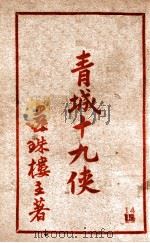 青城十九俠
還珠樓主著
14